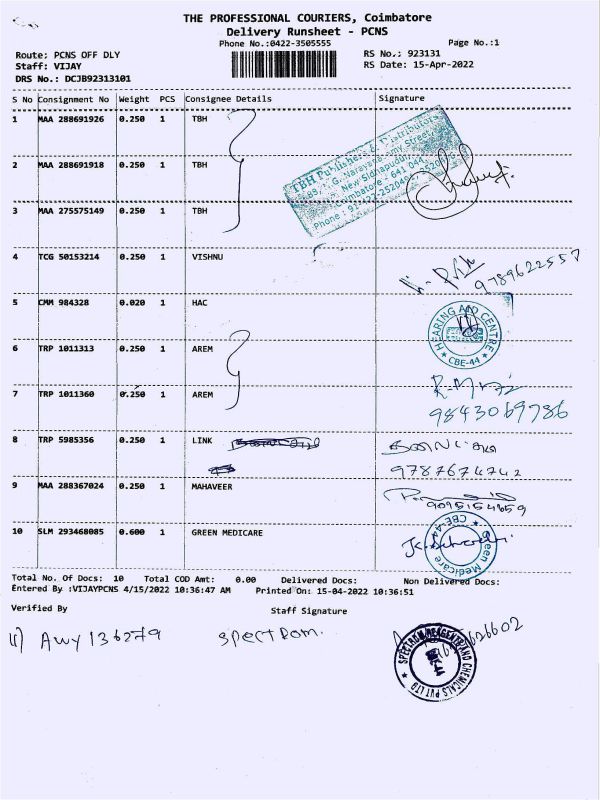 THE PROFESSIONAL COURIERS, Coimbatore
Delivery Runsheet - PCNS
Phone No.:0422-3505555
Page No.:1
Route: PCNS OFF DLY
RS No.: 923131
Staff: VIJAY
RS Date: 15-Apr-2022
DRS No.: DCJB92313101
S No Consignment No Weight PCS Consignee Details Signature
1 MAA 288691926 0.250 1 TBH
2 MAA 288691918 0.250 1 TBH
3 MAA 275575149 0.250 1 TBH
TBH Publishers & Distributors
New Sidhapudur
Coimbatore - 641 044
4 TCG 50153214 0.250 1 VISHNU
9789622557
5 CMM 984328 0.020 1 HAC
HEARING AID CENTRE
CBE-44
6 TRP 1011313 0.250 1 AREM
7 TRP 1011360 0.250 1 AREM
9843069786
8 TRP 5985356 0.250 1 LINK
9787674742
9 MAA 288367024 0.250 1 MAHAVEER
9095154659
10 SLM 293468085 0.600 1 GREEN MEDICARE
Green Medicare
CBE-44
Total No. Of Docs: 10 Total COD Amt: 0.00 Delivered Docs: Non Delivered Docs:
Entered By :VIJAYPCNS 4/15/2022 10:36:47 AM Printed On: 15-04-2022 10:36:51
Verified By Staff Signature
11) AWY 136279 Spectrom.
SPECTRUM REAGENTS AND CHEMICALS PVT LTD